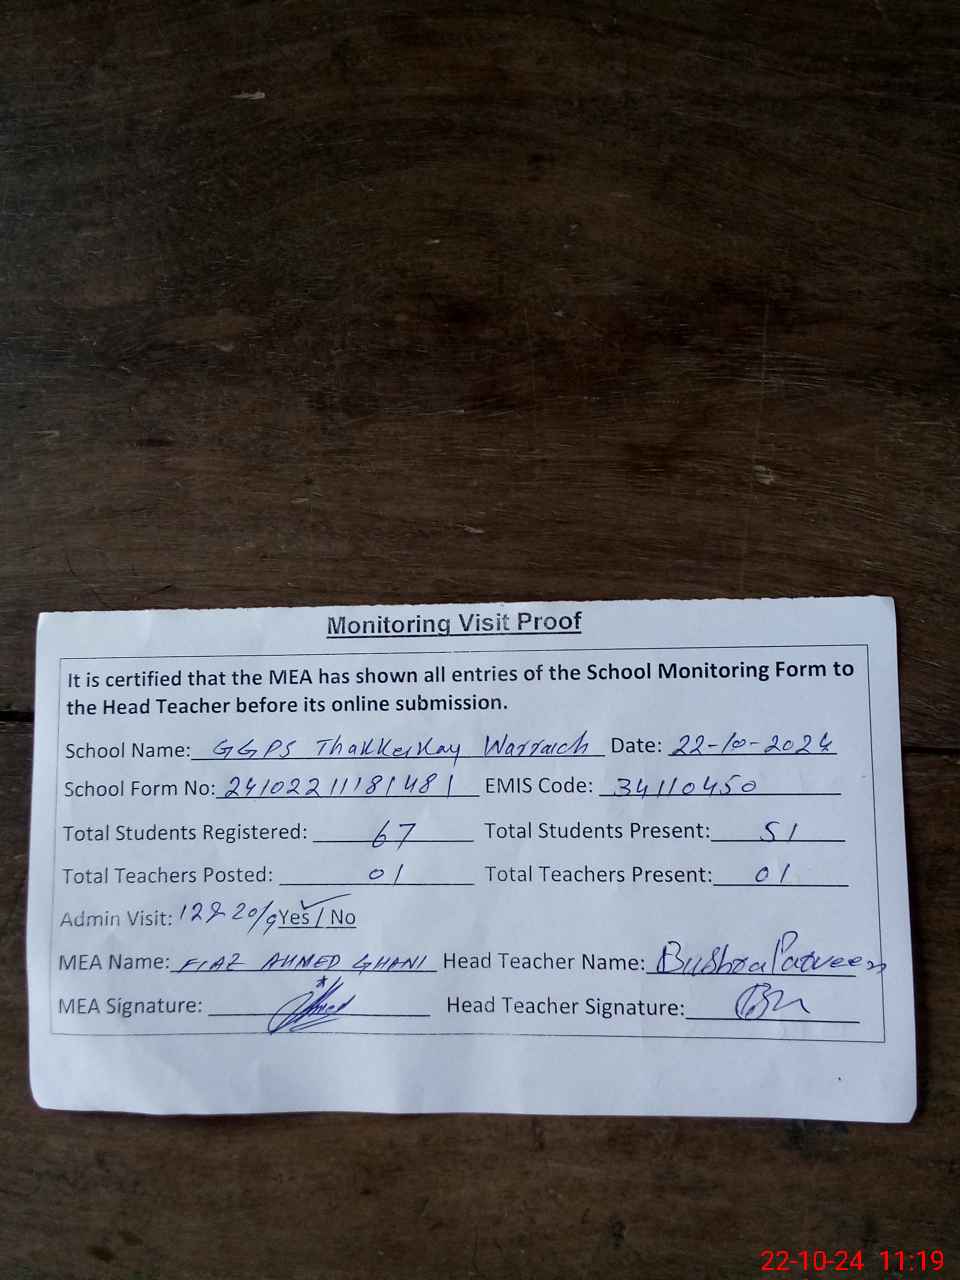 Monitoring Visit Proof
It is certified that the MEA has shown all entries of the School Monitoring Form to
the Head Teacher before its online submission.
School Name: GGPS Thakkerkay Warraich Date: 22-10-2024
School Form No: 24102211181481 EMIS Code: 34110450
Total Students Registered: 67 Total Students Present: 51
Total Teachers Posted: 01 Total Teachers Present: 01
Admin Visit: 12&20/9 Yes / No
MEA Name: FIAZ AHMED GHANI Head Teacher Name: Bushra Parveen
MEA Signature: Head Teacher Signature:
22-10-24 11:19